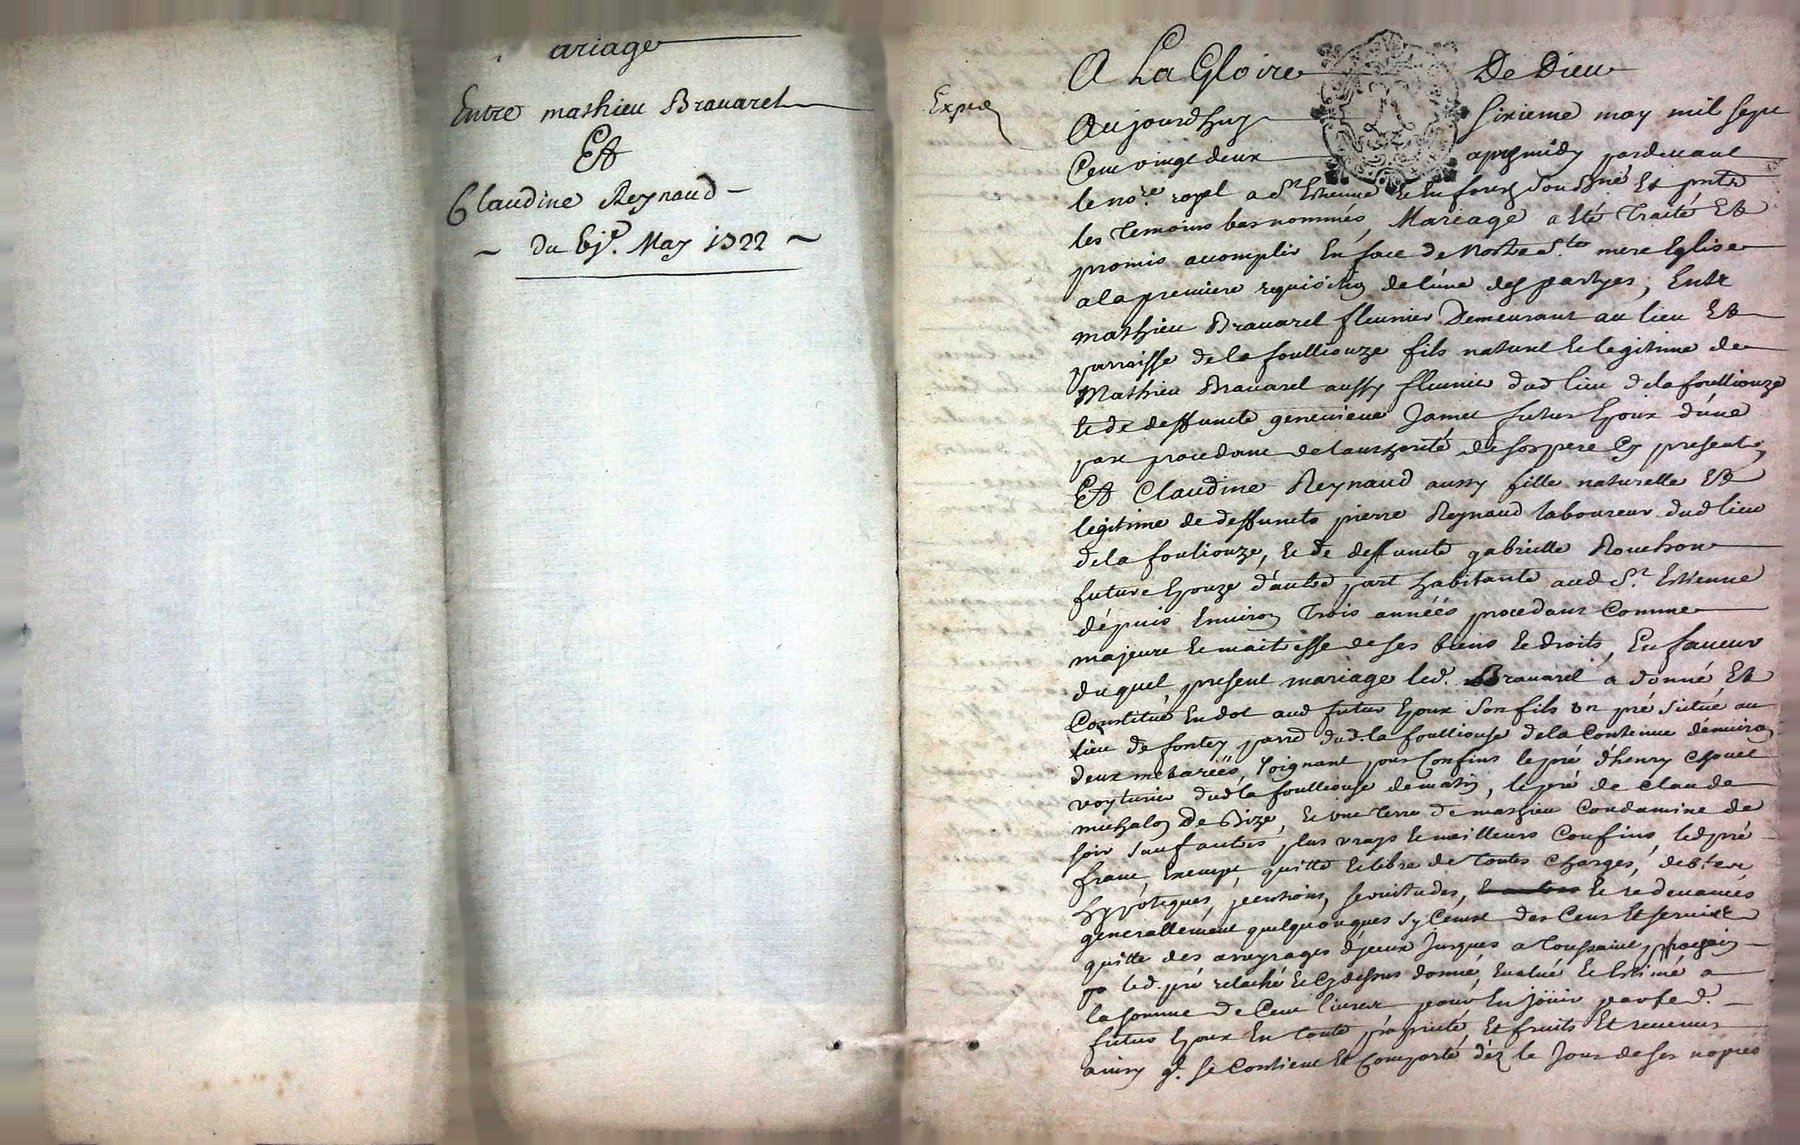 ariage
Entre mathieu Bravarel
Et
Claudine Reynaud
du vje. May 1722
Exped
A La Gloire De Dieu
Aujourdhuy sixieme may mil sept
Cent vingt deux apresmidy pardevant
le nore. royal a St. Estienne Et En forez soubsné Et pnts
les temoins bas nommés, Mariage a été traité Et
promis accomplir En face de nostre Ste. mere Eglise
a la premiere requisition de l'une des partyes, Entre
mathieu Bravarel fleunier Demeurant au lieu Et
parroisse de la foulliouze fils naturel Et legitime de
Mathieu Bravarel aussy fleunier dud lieu de la foulliouze
Et de deffuncte genevieve Jamet futur Epoux d'une
part procedant de l'authorité de son pere Cy present,
Et Claudine Reynaud aussy fille naturelle Et
legitime de deffuncts pierre Reynaud laboureur dud lieu
de la fouliouze, Et de deffuncte gabrielle Rouchon
future Epouze d'autre part habitante aud St. Estienne
dépuis Environ trois années procedant Comme
majeure Et maitresse de ses biens Et droits, En faveur
duquel present mariage led. Bravarel a donné Et
Constitué En dot aud futur Epoux son fils un pré situé au
lieu de fontey parr dud. la foulliouse de la Contenue d'environ
deux metarées, Joignant pour Confins le pré d'henry Chovet
voyturier dud la foulliouse de matin, le pré de Claude
michalon De Bize, Et une terre de mathieu Condamine de
soir sauf autres plus vrays Et meilleurs Confins, led pré
franc, Exempt, quitte Et libre de toutes charges, debtes
hypoteques, pentions, servitudes, Et redevances
generallement quelquonques sy Ceux des Cens Et servis
quitte des arreyrages d'yceux Jusques a toussaint prochain
led. pré relaché Et Cy dessus donné, Evalué Et Estimé a
la somme de Cent livres pour En joüir par led.
futur Epoux En toute proprieté Et fruits Et revenus
ainsy q. se Contient Et Comporte dez le Jour de ses nopces